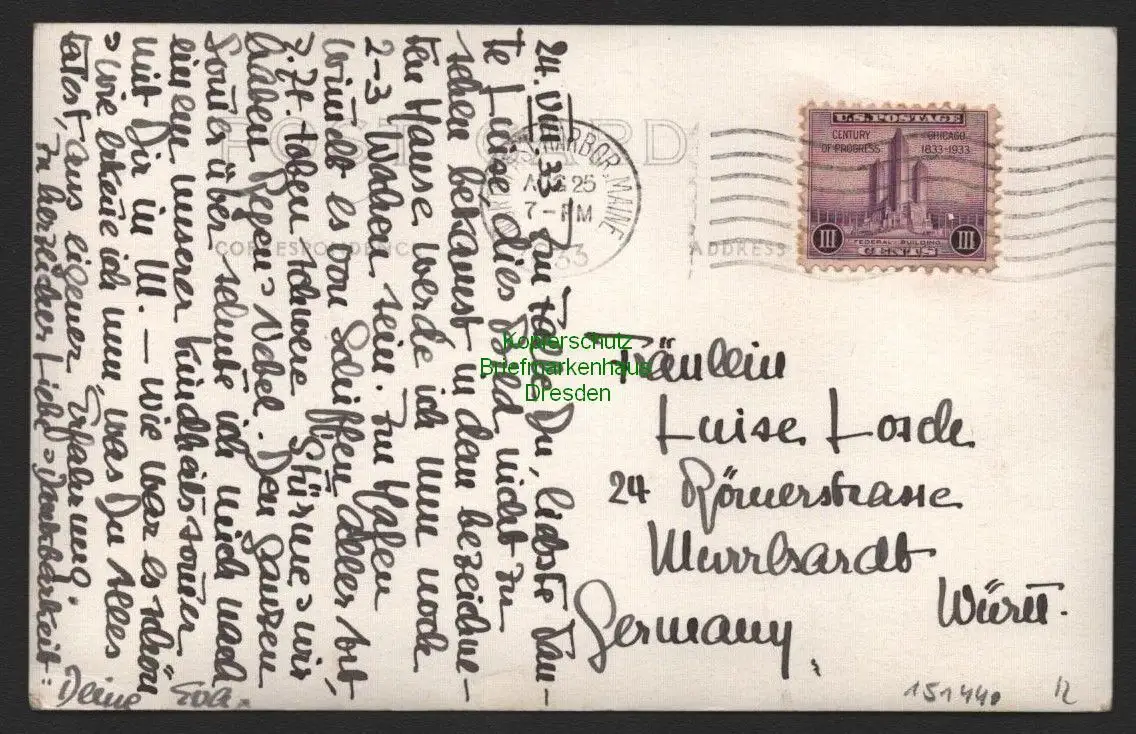 24. VIII. 33. Im Falle Du, liebste Tan-
te Luise, dies Bild nicht zu
sehen bekamst in dem bezeichne-
ten Hause werde ich nun noch
2-3 Wochen sein. Im Hafen
wimmelt es von Schiffen aller Art,
z. Zt. toben schwere Stürme = wir
haben Regen = Nebel. Den ganzen
Sommer über sehnte ich mich nach
einem unserer Kindheitssommer
mit Dir in M. — wie war es schön
= wie erkenne ich nun, was Du Alles
tatest, aus eigener Erfahrung.
In herzlicher Liebe = Dankbarkeit:
Deine Eva.
POST CARD
CORRESPONDENCE
ADDRESS
HARBOR, MAINE
AUG 25
7-PM
33
U.S. POSTAGE
CENTURY OF PROGRESS
CHICAGO 1833-1933
FEDERAL BUILDING
III CENTS III
Kopierschutz
Briefmarkenhaus
Dresden
Fräulein
Luise Losch
24 Römerstrasse
Murrhardt
Württ.
Germany
151440 R